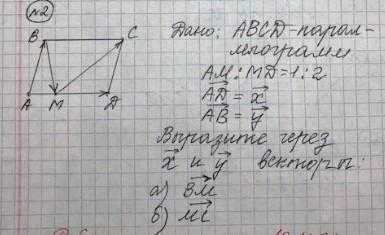 №2
B
C
A
M
D
Дано: ABCD-парал-
лелограмм
AM:MD=1:2
AD = x
AB = y
Выразите через
x и y векторы:
а) BM
б) MC